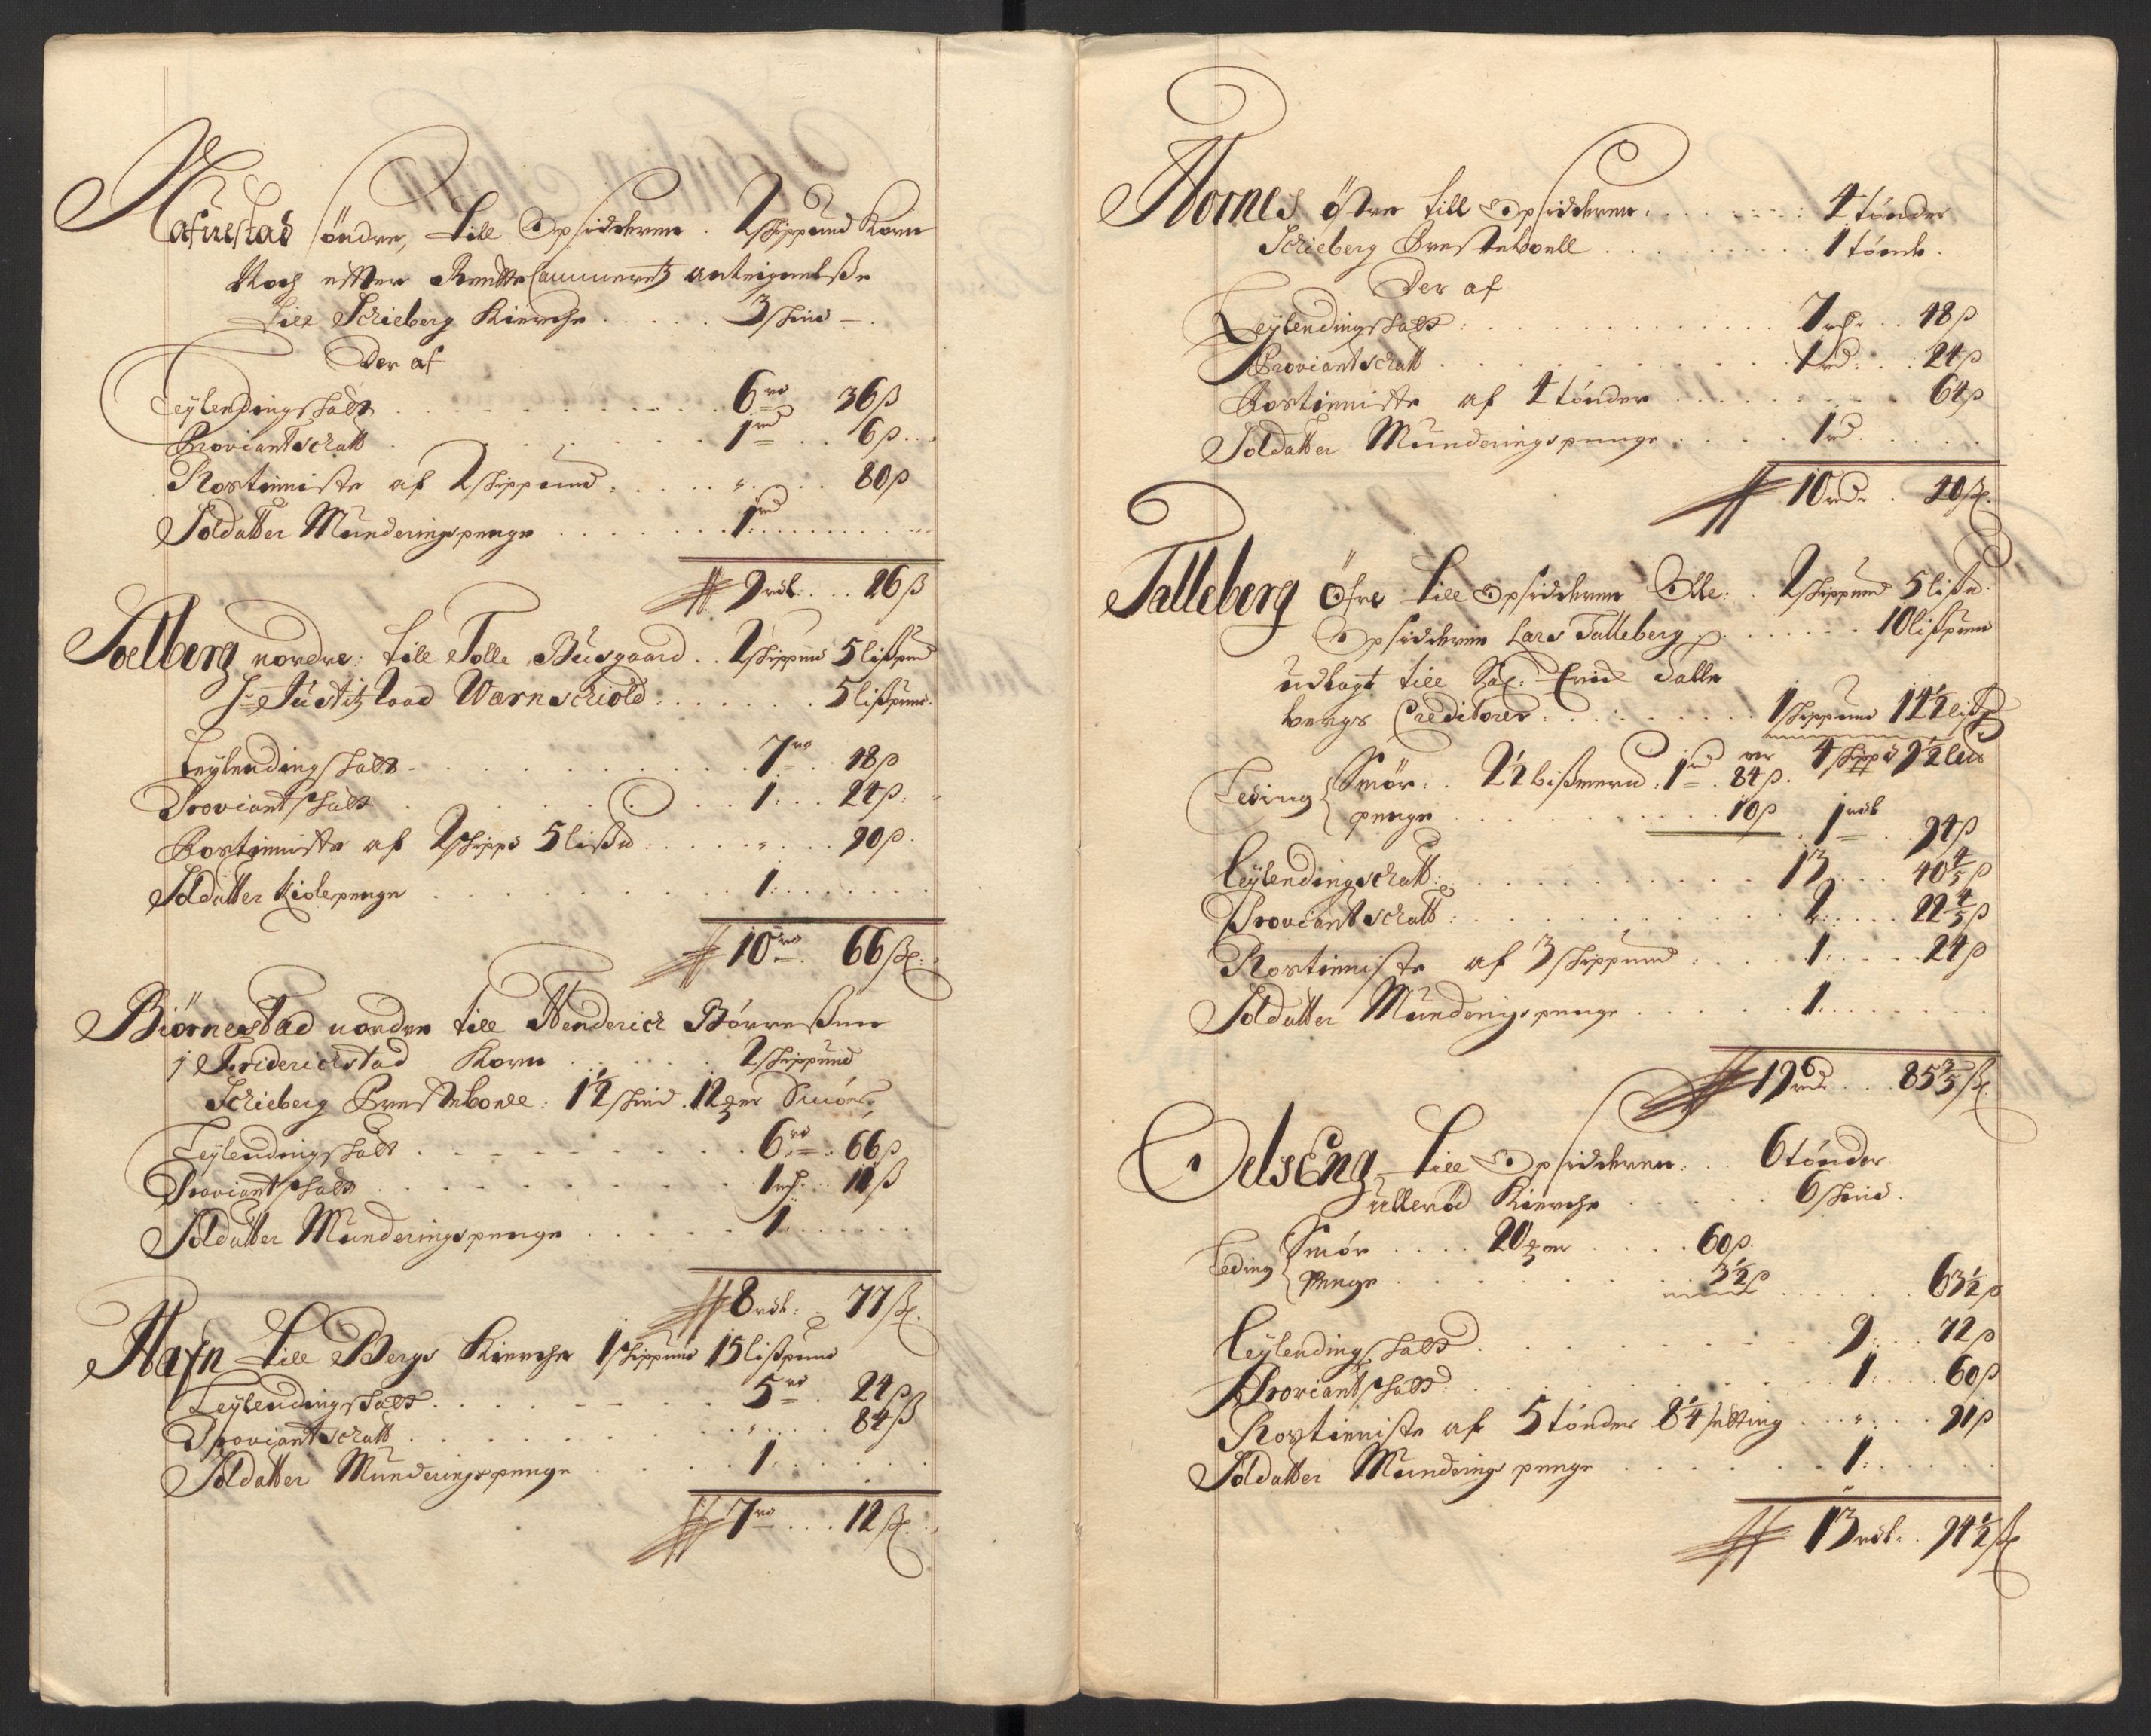 Hafuestad söndre, till Opsidderen . 2 skippund Korn
Noch effter Rentte Cammeretz anteignelsse
till Schieberg Kierche . . . . . 3 skind
Der af
Leylendingskatt . . . . 6 rd 36 ß
Proviantschatt . . . . 1 rd 6 ß
Rostieniste af 2 skippund . . . . „ . . 80 ß
Soldatter Munderingspenge . . . . 1 rd
9 rdl: . . 26 ß
Soelberg nordre: till Tolle Busgaard . . 2 skippund 5 lißpund
Hr Justitz Raad Warnschiold: . . . . 5 lißpund.
Leylendingskatt . . . . 7 rd 48 ß
Proviantskatt . . . . 1: . . 24 ß:
Rostieniste af 2 skippd 5 lißd . . . . „ . . 90 ß.
Soldatter Kiolepenge . . . . 1:
10 rd . 66 ß.
Biörnestad nordre till Henderich Börressen
j Friderichstad Korn . . . . 2 skippund
Schieberg Prestebolle: 1½ skind . 12 ger Smör,
Leylendingskatt . . . . 6 rd . 66 ß
Proviantskatt . . . . 1 rd . 11 ß
Soldatter Munderingspenge . . . . 1:
8 rdl: 77 ß.
Hafn till Bergs Kierche 1 skippund 15 lißpund
Leylendingskatt . . . . 5 rd . 24 ß
Proviantschatt . . . . „ . . 84 ß
Soldatter Munderingspenge . . . . 1:
7 rd . . . 12 ß.
Hornes östre till Opsidderen: . . . . 4 tönder
Schieberg Presteboell . . . . 1 tönde.
Der af
Leylendingskatt: . . . . 7 rd . . 48 ß
Proviantschatt . . . . 1 rd: . . 24 ß
Rostieniste af 4 tönder . . . . 64 ß
Soldatter Munderingspenge . . . . 1 rd
10 rdr . 40 ß.
Talleberg öfre till Opsidderen Olle: . 2 skippund 5 lißd:
Opsidderen Lars Talleberg . . . . 10 lißpund
udlagt till Sal: Erich Talle
bergs Creditorer . . . . 1 skippund 14½ lißd
4 skippd 9½ lißd
Leding { Smör: . 2½ bißmerd . 1 rd . 84 ß.
penge . . . . 10 ß . 1 rdl . 94 ß
Leylendingschatt: . . . . 13 . . . 40⅘ ß
Proviantschatt: . . . . 2: . . . 22⅘ ß
Rostieniste af 3 skippund . . . . 1: . . . 24 ß
Soldatter Munderingspenge . . . . 1:
19 rd . . 85⅗ ß.
OelsEng, till Opsidderen: . . 6 tönder
Ulleröd Kierche . . . . 6 skind.
Leding { Smör . . . . 20 ger . . . . 60 ß.
Penge . . . . 3½ ß . . . . 63½ ß
Leylendingskatt . . . . 9: . . 72 ß
Proviantskatt: . . . . 1: . . . 60 ß
Rostieniste af 5 tönder 8¼ setting . . . „ . . 91 ß
Soldatter Munderings penge . . . . 1:
13 rdl. . 94½ ß